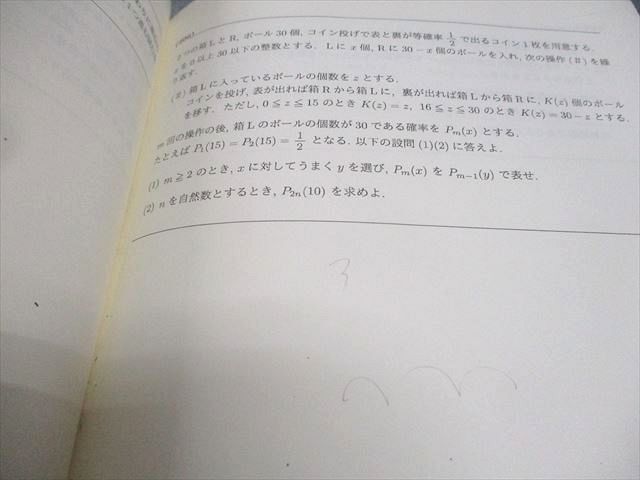 2つの箱LとR, ボール30個, コイン投げで表と裏が等確率 1/2 で出るコイン1枚を用意する.
x を0以上30以下の整数とする. Lに x 個, Rに 30 − x 個のボールを入れ, 次の操作 (♯) を繰
り返す.
(♯) 箱Lに入っているボールの個数を z とする.
コインを投げ, 表が出れば箱Rから箱Lに, 裏が出れば箱Lから箱Rに, K(z) 個のボール
を移す. ただし, 0 ≦ z ≦ 15 のとき K(z) = z, 16 ≦ z ≦ 30 のとき K(z) = 30 − z とする.
m 回の操作の後, 箱Lのボールの個数が30である確率を Pm(x) とする.
たとえば P1(15) = P2(15) = 1/2 となる. 以下の設問 (1)(2) に答えよ.
(1) m ≧ 2 のとき, x に対してうまく y を選び, Pm(x) を Pm−1(y) で表せ.
(2) n を自然数とするとき, P2n(10) を求めよ.
3